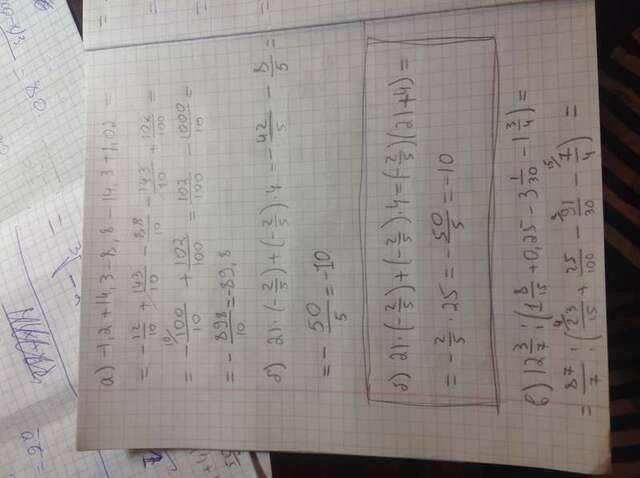 а) -1,2+14,3-8,8-14,3+1,02=
= -12/10 + 143/10 - 88/10 - 143/10 + 102/100 =
= -100/10 + 102/100 = 102/100 - 1000/10 =
= -898/10 = -89,8
б) 21·(-2/5)+(-2/5)·4 = -42/5 - 8/5 =
= -50/5 = -10
б) 21·(-2/5)+(-2/5)·4=(-2/5)(21+4)=
= -2/5·25 = -50/5 = -10
в) 12 3/7 : (1 8/15 + 0,25 - 3 1/30 - 1 3/4) =
= 87/7 : (23/15 + 25/100 - 91/30 - 7/4) =